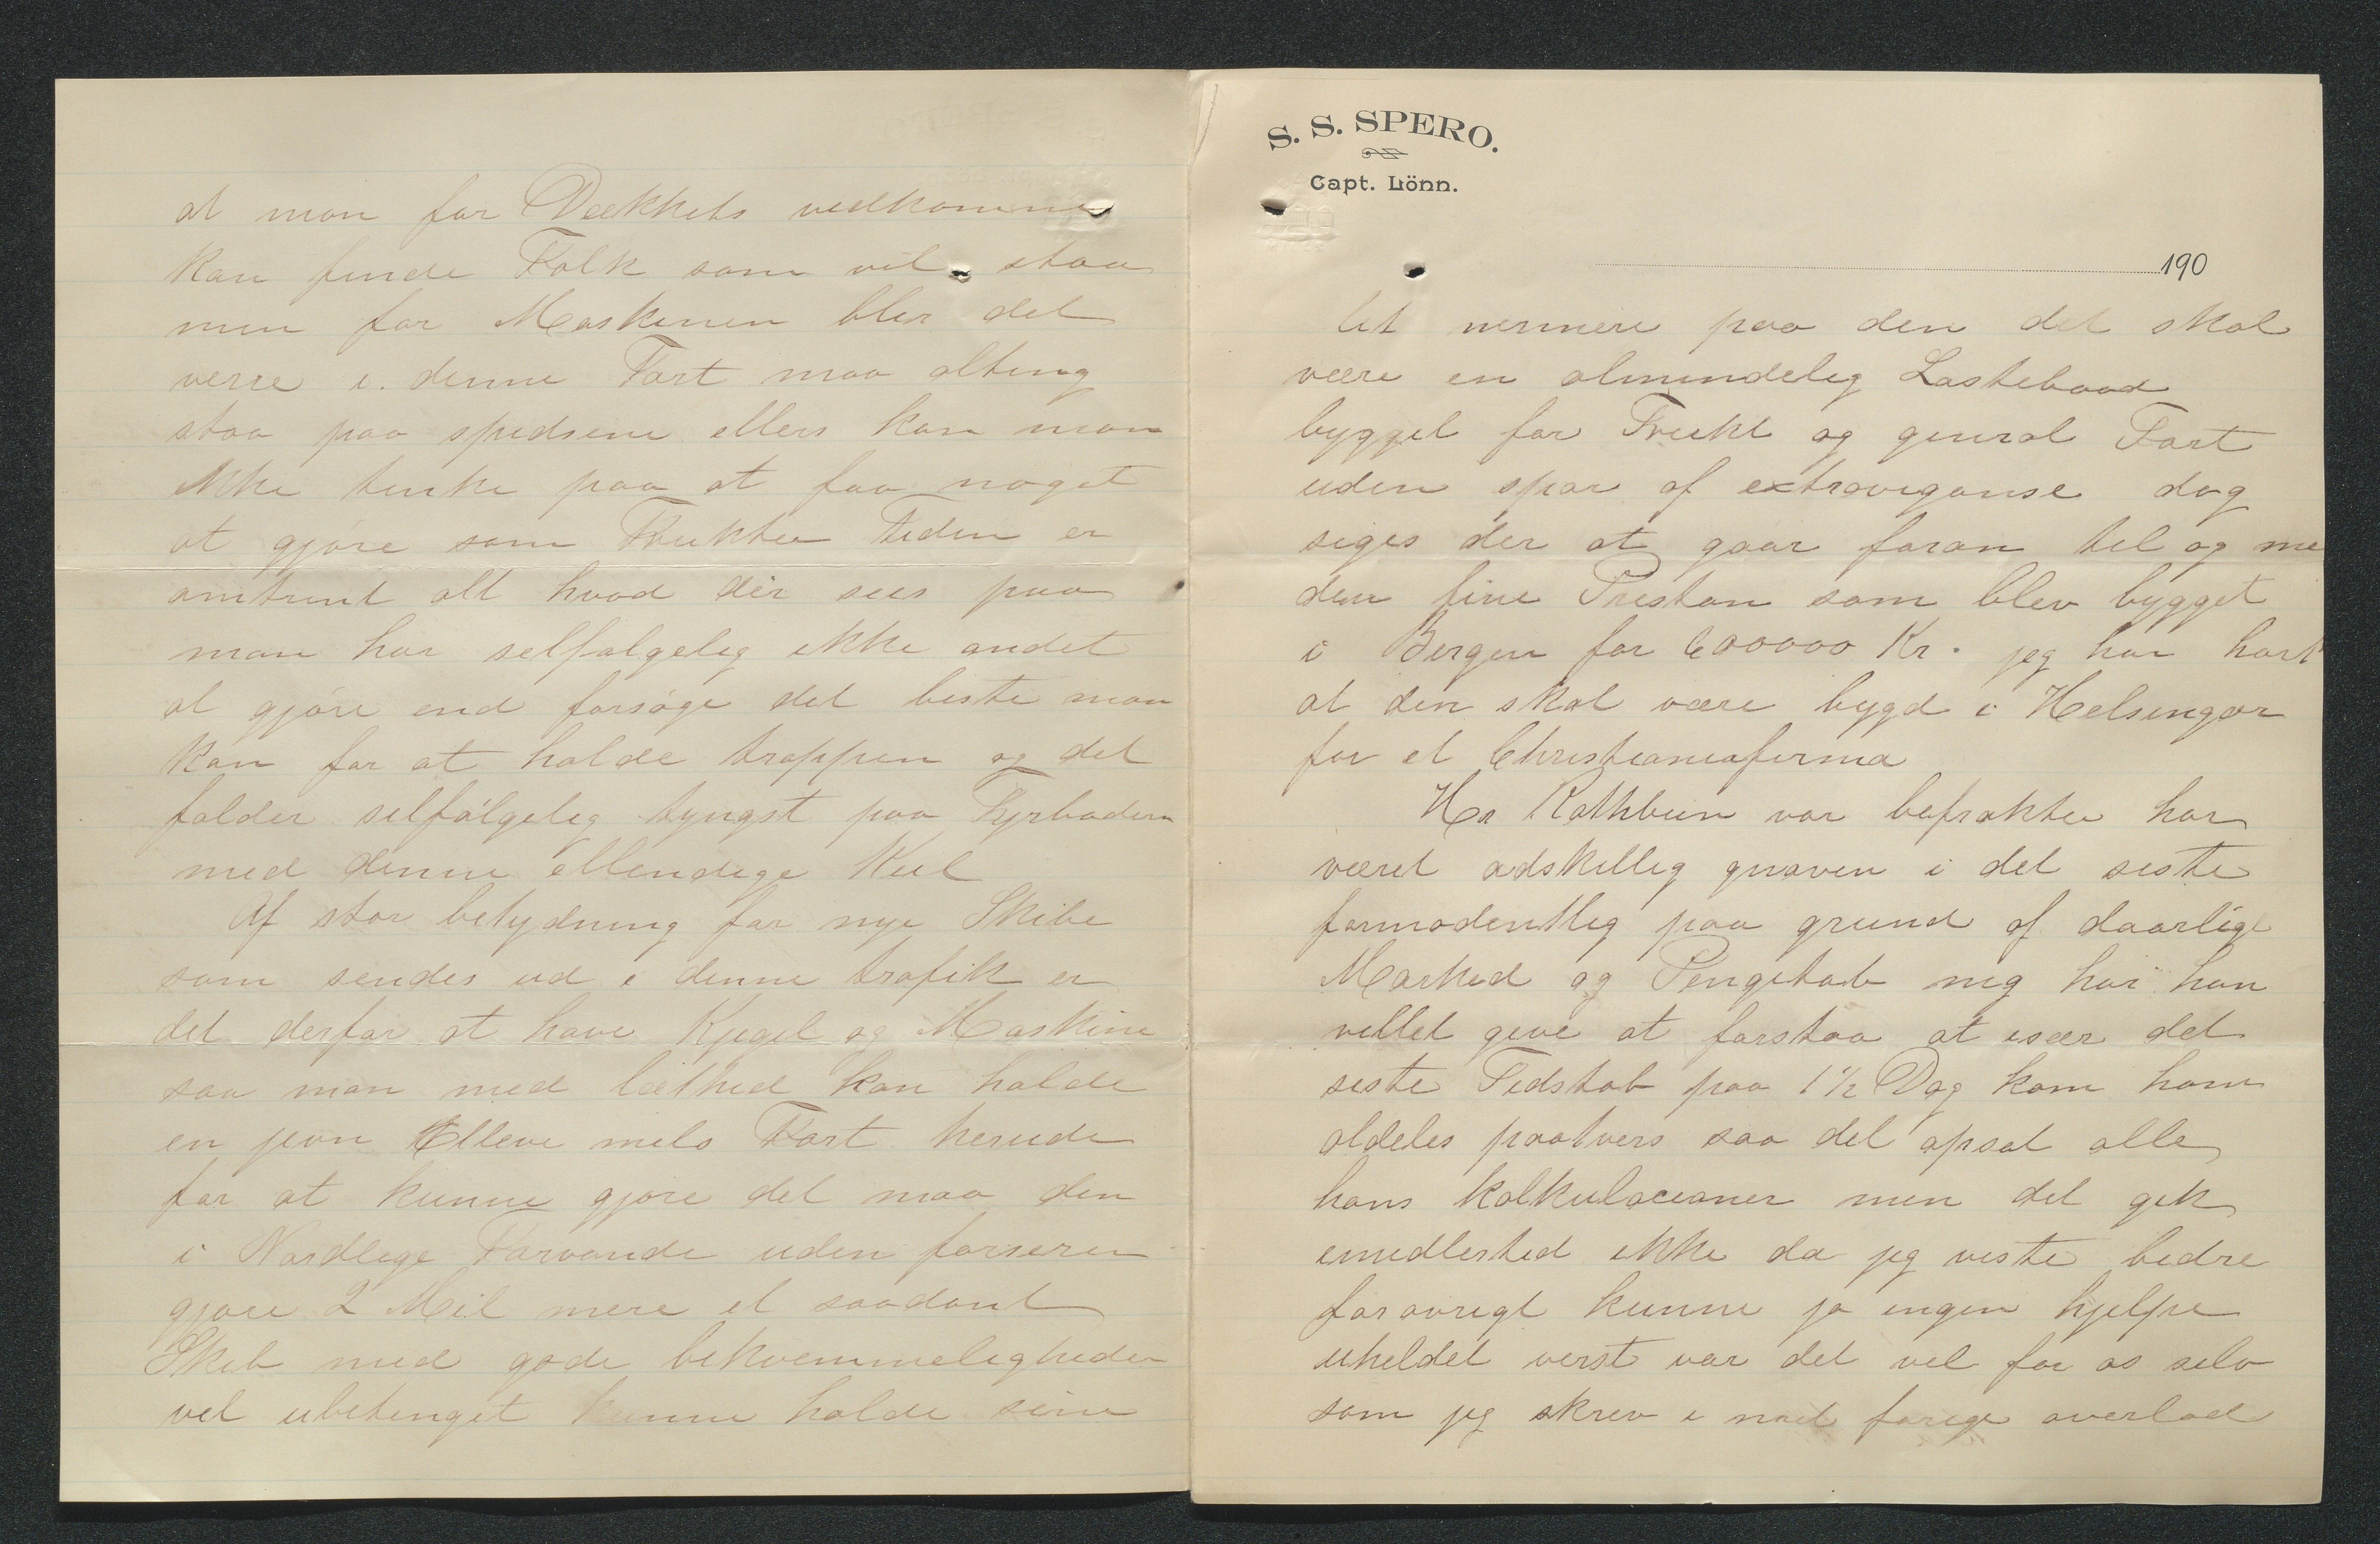 at man for Dækkets vedkommen
kan finde Folk som vil staa
men for Maskinen blir det
verre i denne Fart maa alting
staa paa spidsene ellers kan man
ikke tenke paa at faa noget
at gjøre som Frukter Tiden er
omtrent alt hvad der sees paa
man har selfølgelig ikke andet
at gjøre end forsøge det beste man
kan for at holde troppen og det
falder selfølgelig tyngst paa Fyrbødern
med denne ellendige Kul
Af stor betydning for nye Skibe
som sendes ud i denne trafik er
det derfor at have Kjegel og Maskine
saa man med lethed kan holde
en jevn Elleve mils Fart herude
for at kunne gjøre det maa den
i Nordlige Farvande uden forseren
gjøre 2 Mil mere et saadant
Skib med gode bekvemmeligheder
vil ubetinget kunne holde sine
S. S. SPERO.
Capt. Lönn.
190
lit nermere paa den det skal
være en almindelig Lastebaad
bygget for Frukt og general Fart
uden spor af extraveganse dog
siges der at gaar foran til og me
den fine Preston som blev bygget
i Bergen for 600000 Kr. jeg har hørt
at den skal være bygd i Helsingør
for et Christianiafirma
Hr Rathbun vor befrakter har
været adskillig gnaven i det siste
formodentlig paa grund af daarlige
Marked og Pengetab mig har han
villet give at forstaa at især det
siste Tidstab paa 1 1/2 Dag kom ham
aldeles paatvers saa det opsat alle
hans Kalkulacioner men det gik
emedlertid ikke da jeg viste bedre
forøvrigt kunne jo ingen hjelpe
uheldet verst var det vel for os selv
som jeg skrev i mit forige overlod